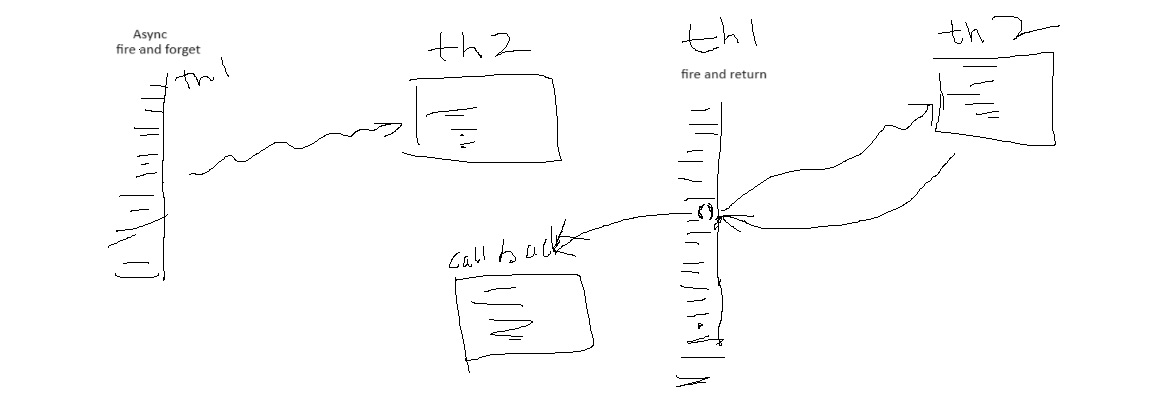 Async
fire and forget
th1
th2
th1
fire and return
th2
()
call back